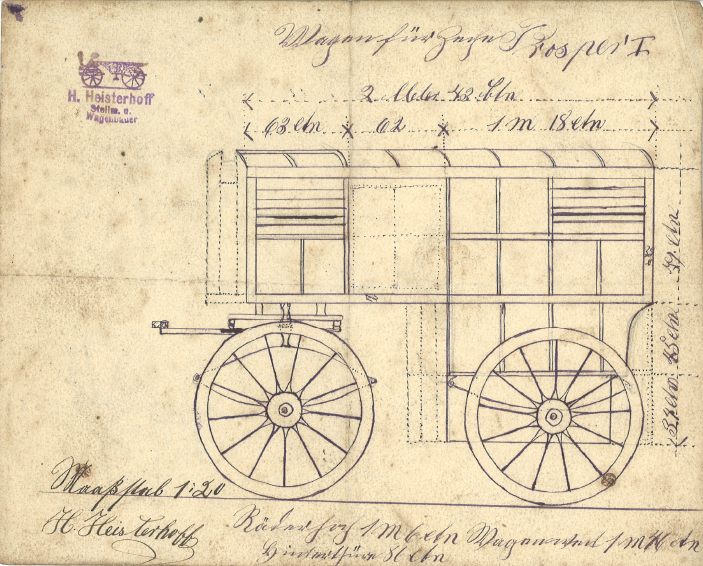 Wagen für Zeche Prosper I
H. Heisterhoff
Stellm. u.
Wagenbauer
2 Meter 42 Ctn
63 ctn 62 1 m 18 ctn
ctn
45 ctn
37 ctn
Maaßstab 1:20
H. Heisterhoff
Räder hoch 1 M 6 ctn Wagen weit 1 m 16 ctn
Hinterthüre 81 ctn